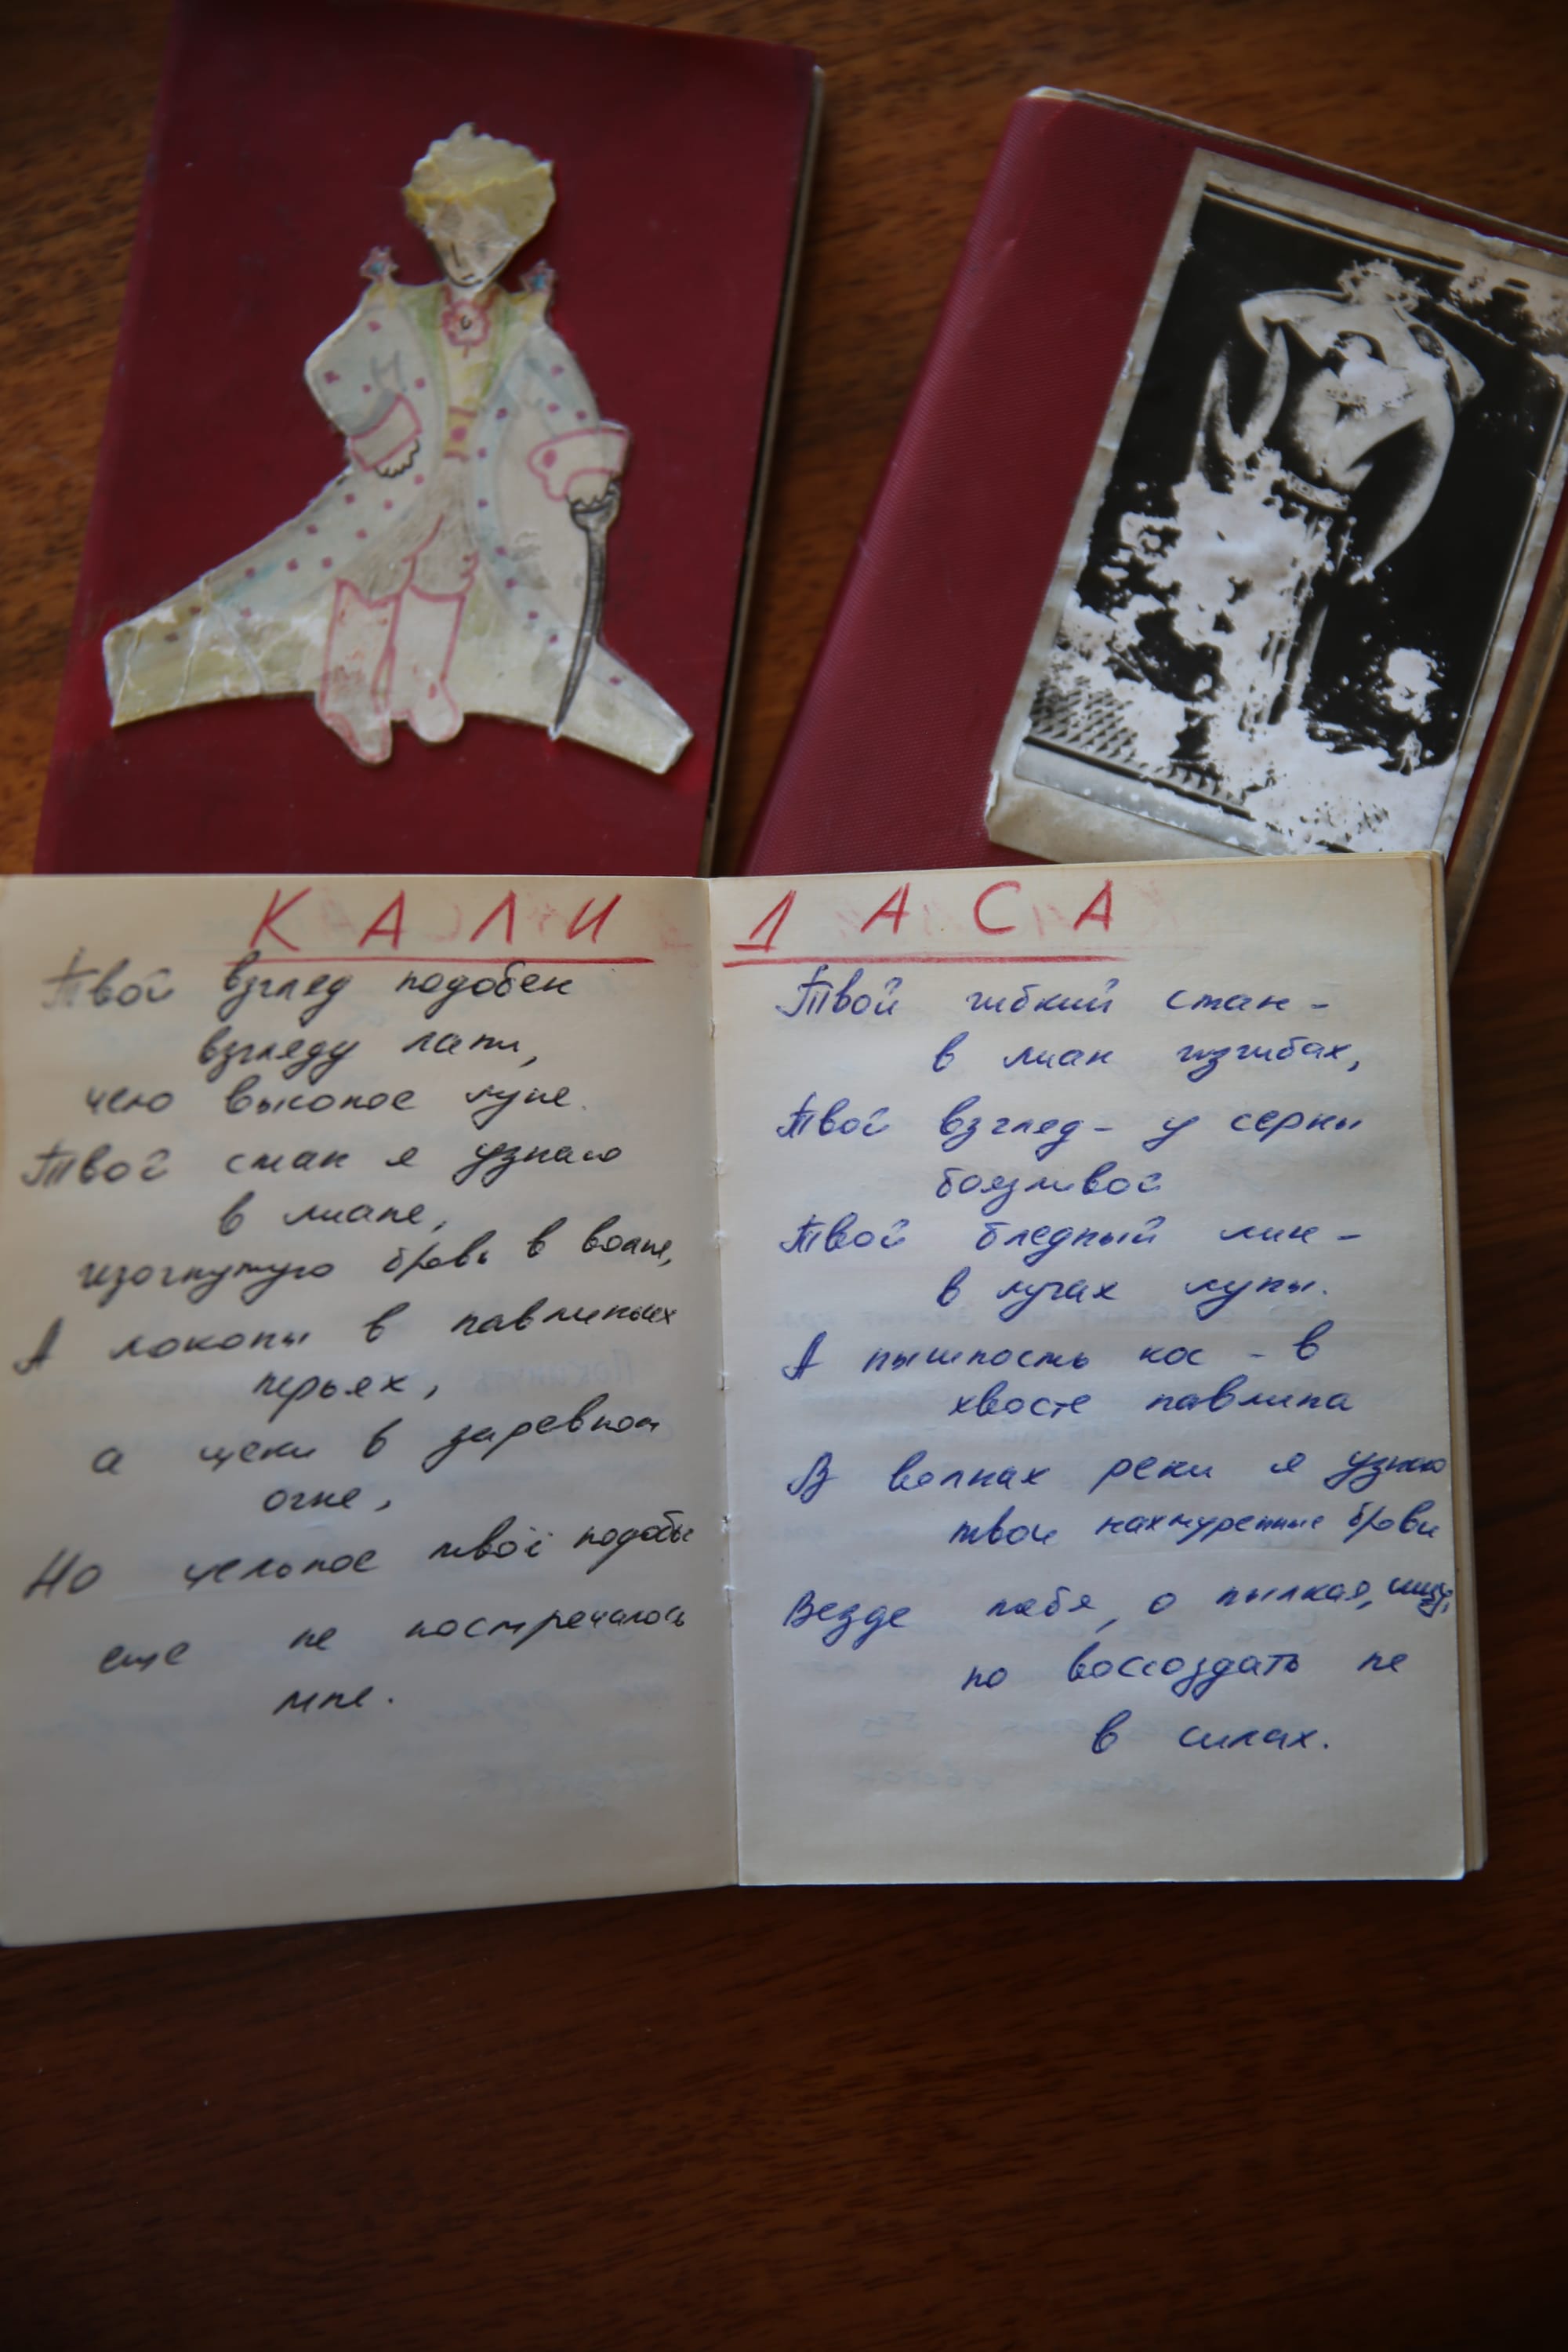 КАЛИДАСА
Твой взгляд подобен
взгляду лани,
чело высокое луне.
Твой стан я узнаю
в лиане,
изогнутую бровь в волне,
А локоны в павлиньих
перьях,
а щеки в заревном
огне,
Но цельное твоё подобье
еще не повстречалось
мне.
Твой гибкий стан –
в лиан изгибах,
Твой взгляд – у серны
боязливой
Твой бледный лик –
в лучах луны.
А пышность кос – в
хвосте павлина
В волнах реки я узнаю
твои нахмуренные брови
Везде тебя, о пылкая, ищу,
но воссоздать не
в силах.